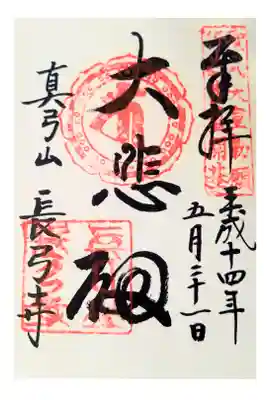 奉拝
平成十四年
五月三十一日
大悲殿
真弓山
長弓寺